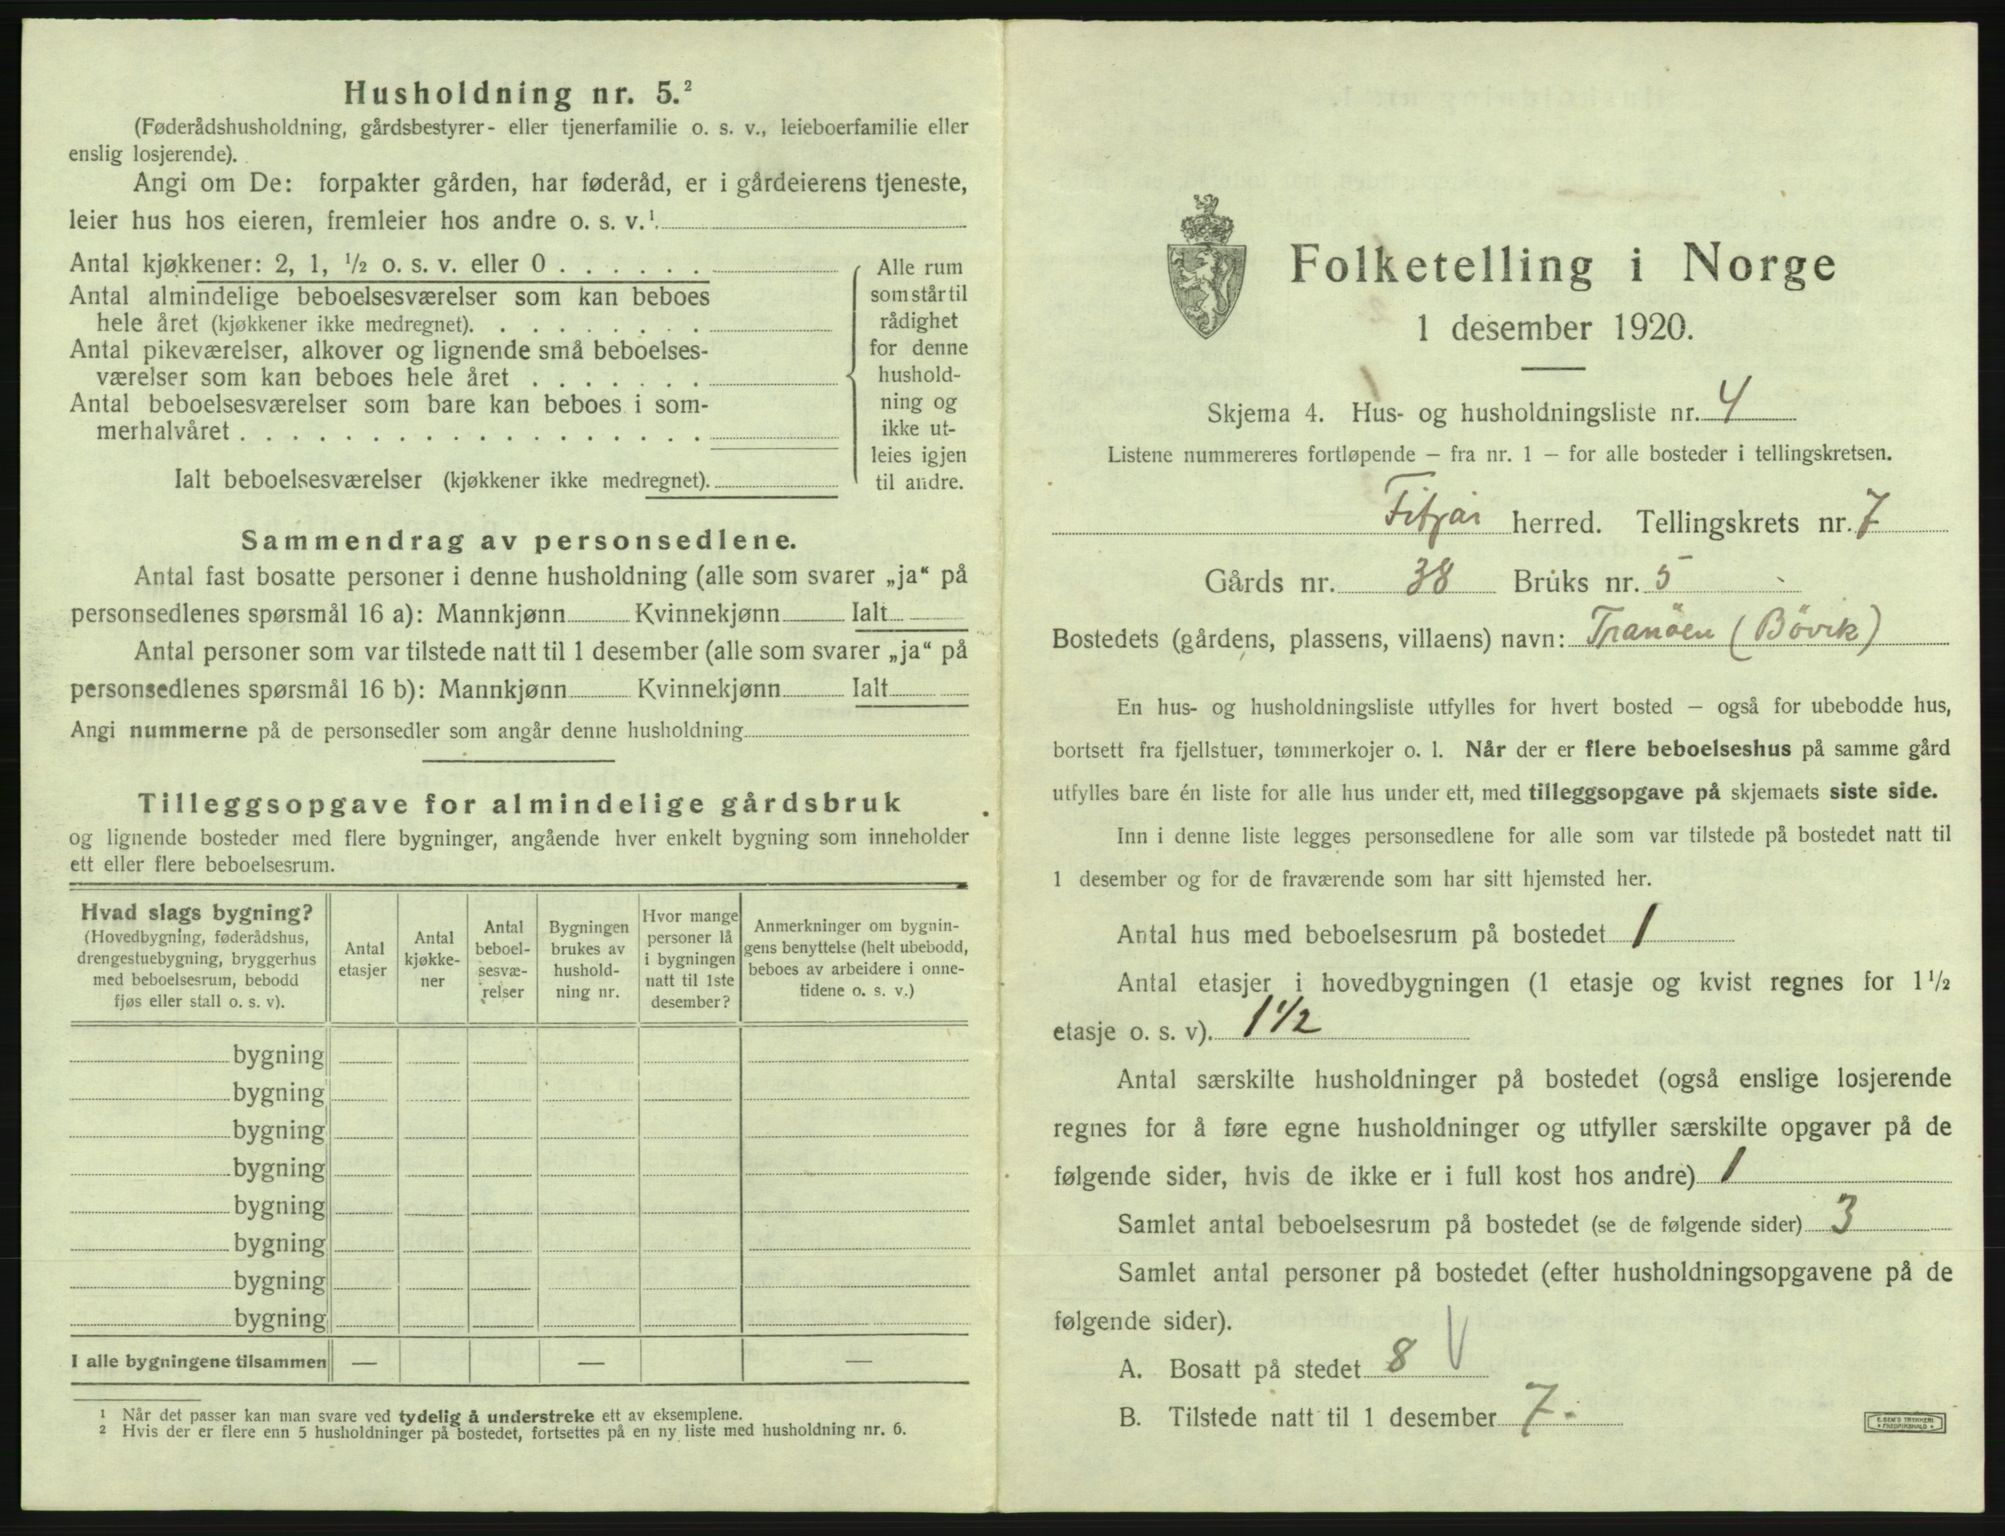 Husholdning nr. 5.²
(Føderådshusholdning, gårdsbestyrer- eller tjenerfamilie o. s. v., leieboerfamilie eller
enslig losjerende).
Angi om De: forpakter gården, har føderåd, er i gårdeierens tjeneste,
leier hus hos eieren, fremleier hos andre o. s. v.¹
Antal kjøkkener: 2, 1, ½ o. s. v. eller 0 . . . . . .
Antal almindelige beboelsesværelser som kan beboes
hele året (kjøkkener ikke medregnet). . . . . . . . .
Antal pikeværelser, alkover og lignende små beboelses-
værelser som kan beboes hele året . . . . . . .
Antal beboelsesværelser som bare kan beboes i som-
merhalvåret . . . . . . . . . . . . . . . . . .
Ialt beboelsesværelser (kjøkkener ikke medregnet).
Alle rum
som står til
rådighet
for denne
hushold-
ning og
ikke ut-
leies igjen
til andre.
Sammendrag av personsedlene.
Antal fast bosatte personer i denne husholdning (alle som svarer „ja“ på
personsedlenes spørsmål 16 a): Mannkjønn Kvinnekjønn Ialt
Antal personer som var tilstede natt til 1 desember (alle som svarer „ja“ på
personsedlenes spørsmål 16 b): Mannkjønn Kvinnekjønn Ialt
Angi nummerne på de personsedler som angår denne husholdning
Tilleggsopgave for almindelige gårdsbruk
og lignende bosteder med flere bygninger, angående hver enkelt bygning som inneholder
ett eller flere beboelsesrum.
Hvad slags bygning?
(Hovedbygning, føderådshus,
drengestuebygning, bryggerhus
med beboelsesrum, bebodd
fjøs eller stall o. s. v).
Antal
etasjer
Antal
kjøkke-
ner
Antal
beboel-
sesvæ-
relser
Bygningen
brukes av
hushold-
ning nr.
Hvor mange
personer lå
i bygningen
natt til 1ste
desember?
Anmerkninger om bygnin-
gens benyttelse (helt ubebodd,
beboes av arbeidere i onne-
tidene o. s. v.)
bygning
bygning
bygning
bygning
bygning
bygning
bygning
bygning
I alle bygningene tilsammen — — —
¹ Når det passer kan man svare ved tydelig å understreke ett av eksemplene.
² Hvis der er flere enn 5 husholdninger på bostedet, fortsettes på en ny liste med husholdning nr. 6.
Folketelling i Norge
1 desember 1920.
Skjema 4. Hus- og husholdningsliste nr. 4
Listene nummereres fortløpende – fra nr. 1 – for alle bosteder i tellingskretsen.
Fitjar herred. Tellingskrets nr. 7
Gårds nr. 38 Bruks nr. 5
Bostedets (gårdens, plassens, villaens) navn: Tranöen (Bövik)
En hus- og husholdningsliste utfylles for hvert bosted – også for ubebodde hus,
bortsett fra fjellstuer, tømmerkojer o. l. Når der er flere beboelseshus på samme gård
utfylles bare én liste for alle hus under ett, med tilleggsopgave på skjemaets siste side.
Inn i denne liste legges personsedlene for alle som var tilstede på bostedet natt til
1 desember og for de fraværende som har sitt hjemsted her.
Antal hus med beboelsesrum på bostedet 1
Antal etasjer i hovedbygningen (1 etasje og kvist regnes for 1½
etasje o. s. v). 1½
Antal særskilte husholdninger på bostedet (også enslige losjerende
regnes for å føre egne husholdninger og utfyller særskilte opgaver på de
følgende sider, hvis de ikke er i full kost hos andre) 1
Samlet antal beboelsesrum på bostedet (se de følgende sider) 3
Samlet antal personer på bostedet (efter husholdningsopgavene på de
følgende sider).
A. Bosatt på stedet 8 V
B. Tilstede natt til 1 desember 7.
E. SEM'S TRYKKERI
• FREDRIKSHALD •